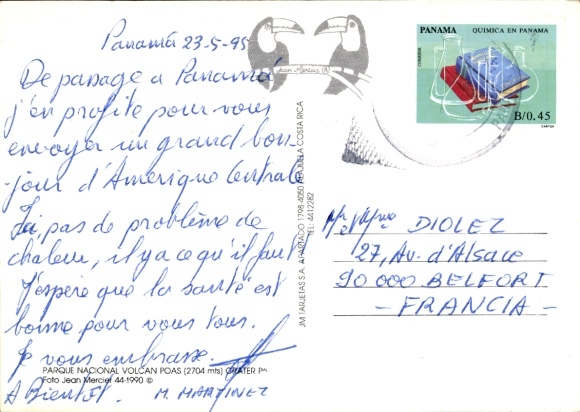 Panamá 23-5-95
De passage a Panamá
j'en profite pour vous
envoyer un grand bon-
-jour d'Amerique Centrale
Ici pas de problème de
chaleur, il y a ce qu'il faut
J'espère que la santé est
bonne pour vous tous.
Je vous embrasse.
A Bientôt. M. MARTINEZ
PARQUE NACIONAL VOLCAN POAS (2704 mts) CRATER Pᵃˡ
Foto Jean Mercier 44-1990 ©
JM TARJETAS S.A. APARTADO 1798-4050 ALAJUELA COSTA RICA
TEL: 4412282
Jean Mercier
PANAMA QUIMICA EN PANAMA
B/0.45
Mr et Mme DIOLEZ
27, Av. d'Alsace
90000 BELFORT
- FRANCIA -